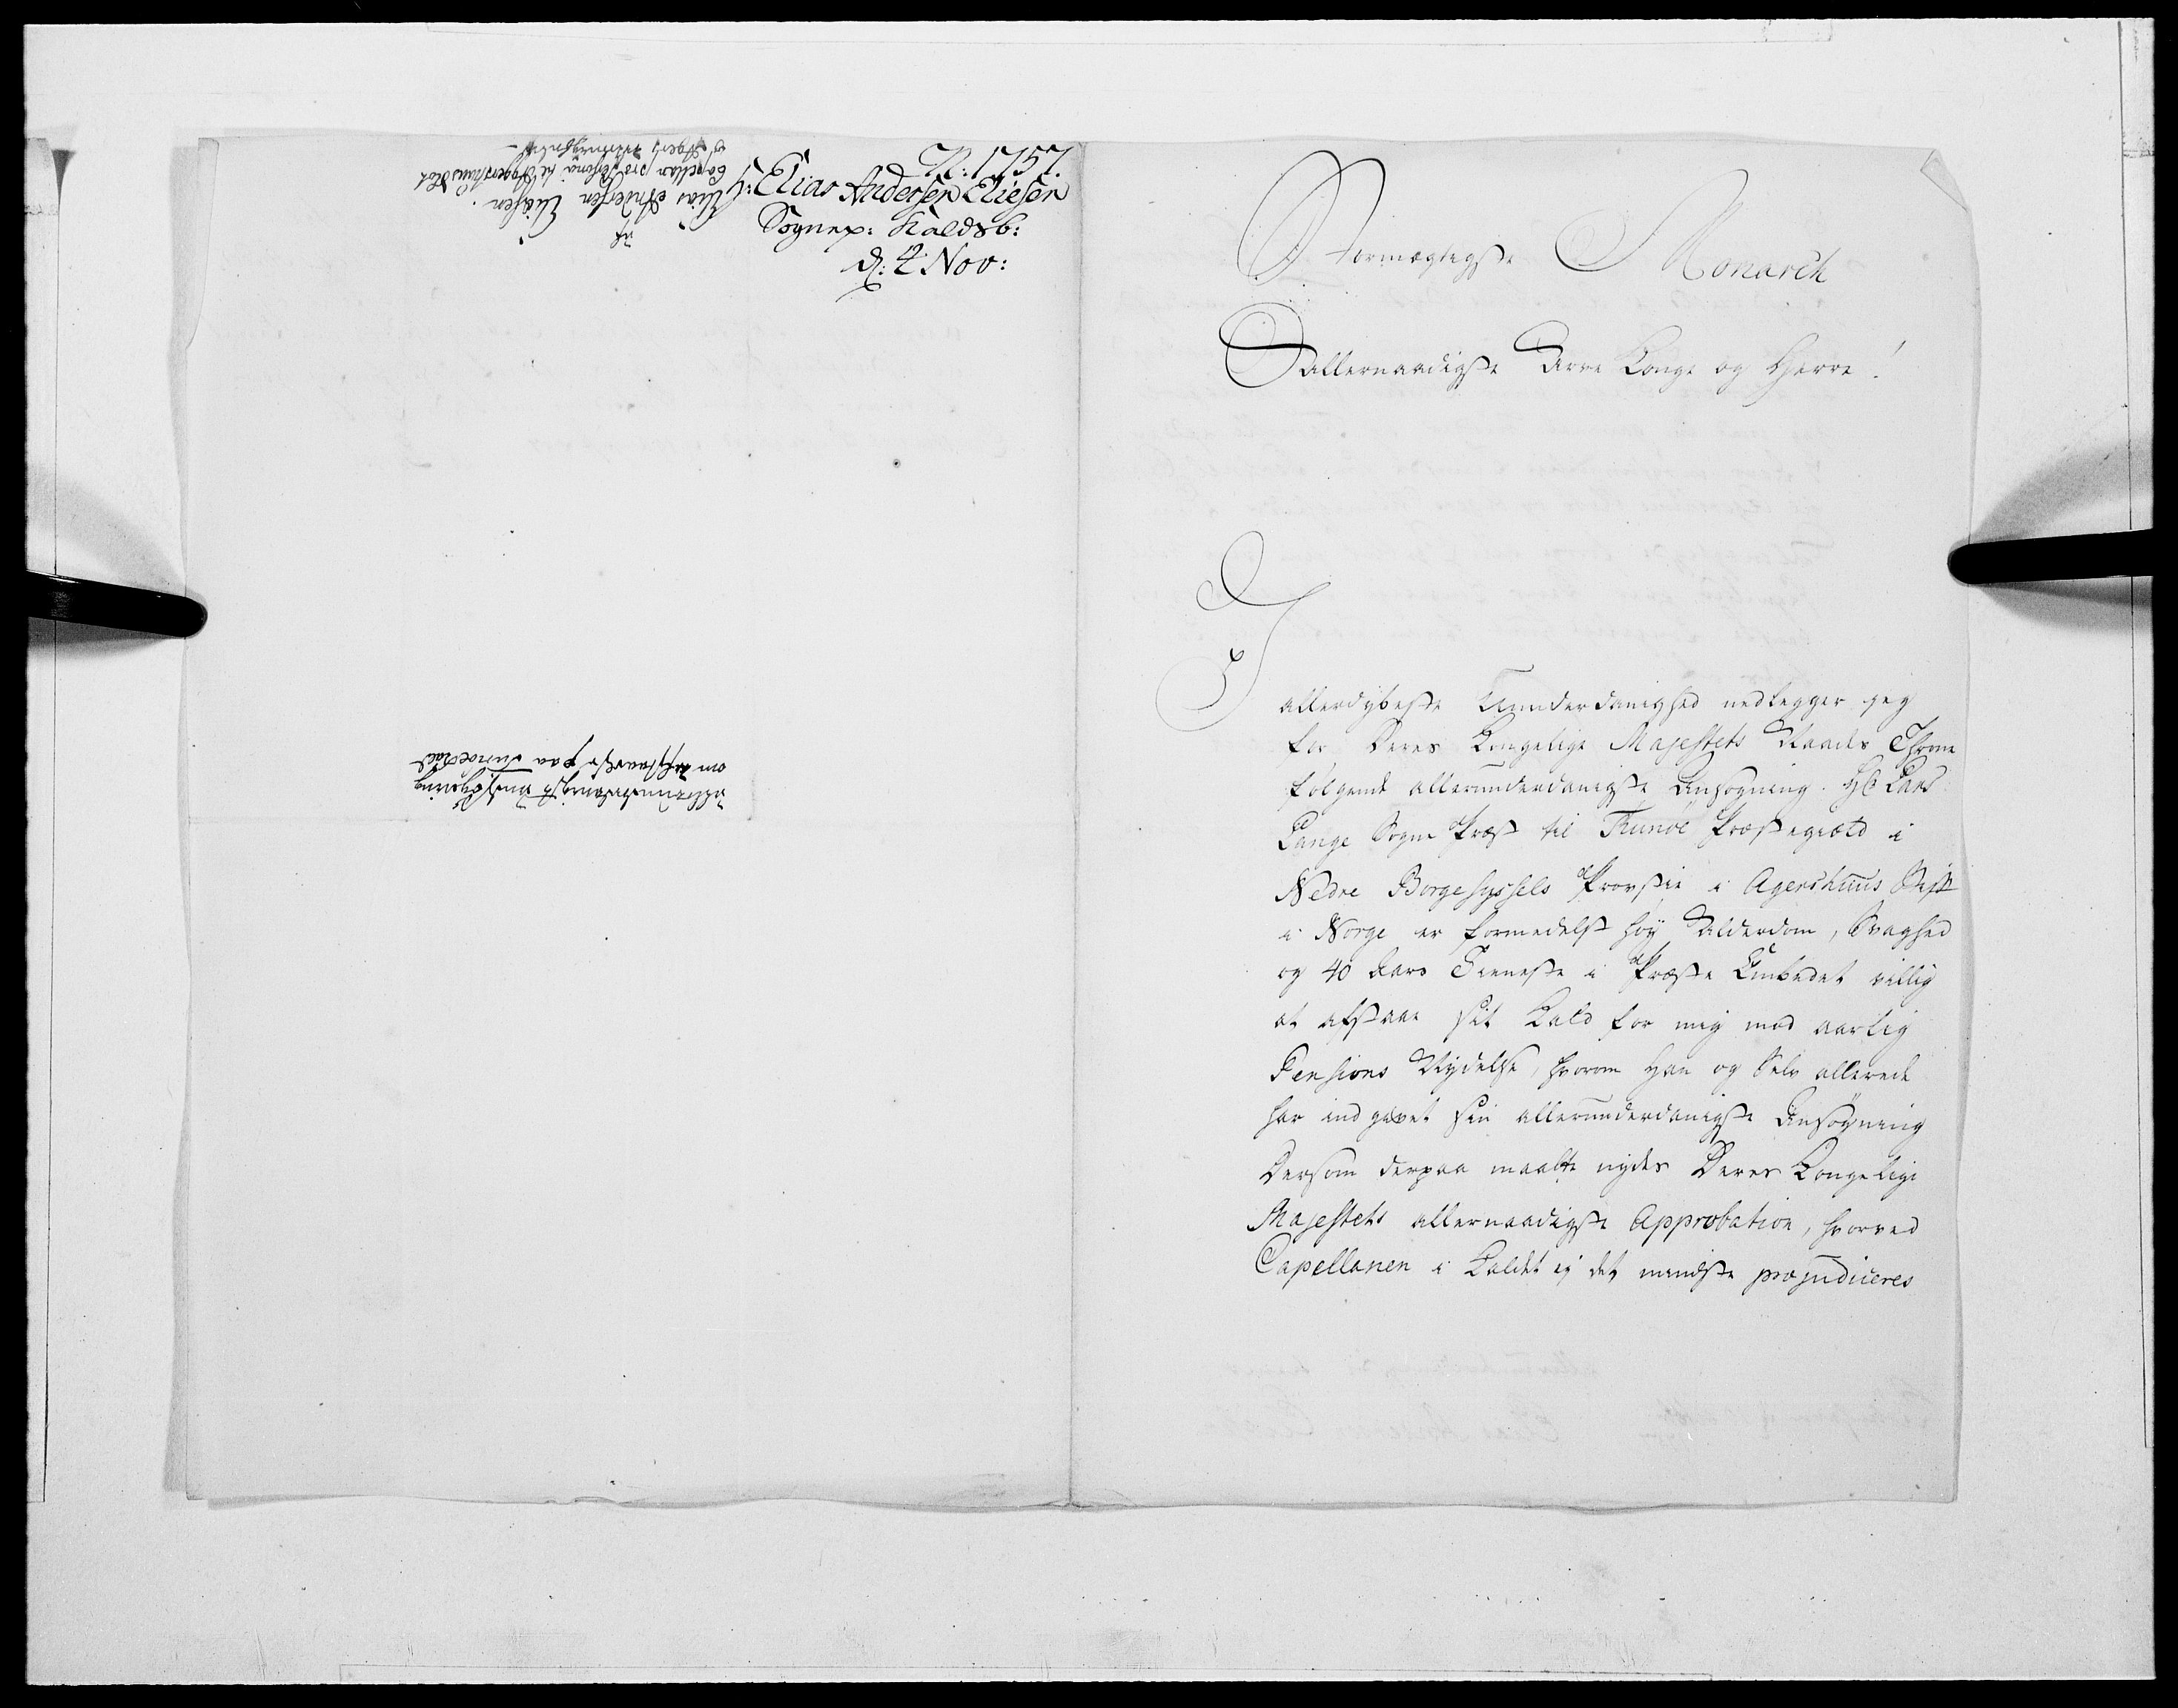 N: 1757.
H: Elias Andersen Eliesen
Sognep: Kaldsb:
d: 4 Nov:
Allerunderdanigst Ansøgning
om afstaaelse paa Tunøe Kald
af
Elias Andersen Eliesen.
Capellan pro Persona til Aggershuus Slot
Stormægtigste Monarch
Allernaadigste Arve Konge og Herre!
I
allerdybeste Underdanighed nedlegger jeg
for Deres Kongelige Majestets Naades Throne
følgende allerunderdanigste Ansøgning. Hr Lars
Lange Sogne Præst til Thunøe Præstegield i
Nedre Borgesyssels Provstie i Agershuus Stift
i Norge er formedelst høy Alderdom, Svaghed
og 40 Aars Tieneste i Præste Embedet villig
at afstaae sit Kald for mig mod aarlig
Pensions Nydelse, hvorom Han og Selv allerede
har indgivet sin allerunderdanigste Ansøgning
Dersom derpaa maatte nydes Deres Kongelige
Majestets allernaadigste Approbation, hvorved
Capellanen i Kaldet ej det mindste præjudiceres